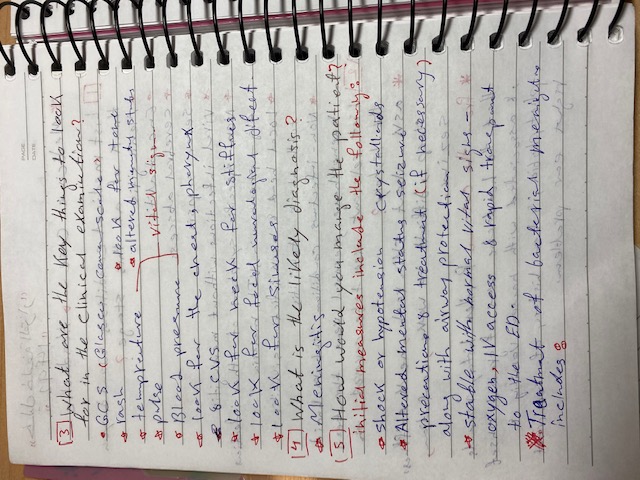 3 What are the key things to look
for in the clinical examination?
GCS (Glasgow coma scale)
rash
look for tone
altered mental status
temprature
pulse
Blood pressure
Vital sign
look for the chest, pharynx
& CVS
look for neck for stiffness
look for focal neurological defect
look for sinuses
4 What is the likely diagnosis?
Meningitis
5 How would you mange the patient?
initial measures include the following:
shock or hypotension crystalloids
Altered mental status seizure
precautions & treatment (if necessary)
along with airway protection.
stable with normal vital signs -
oxygen, IV access & rapid transport
to the ED.
Treatment of bacterial meningitis
includes:
PAGE
DATE